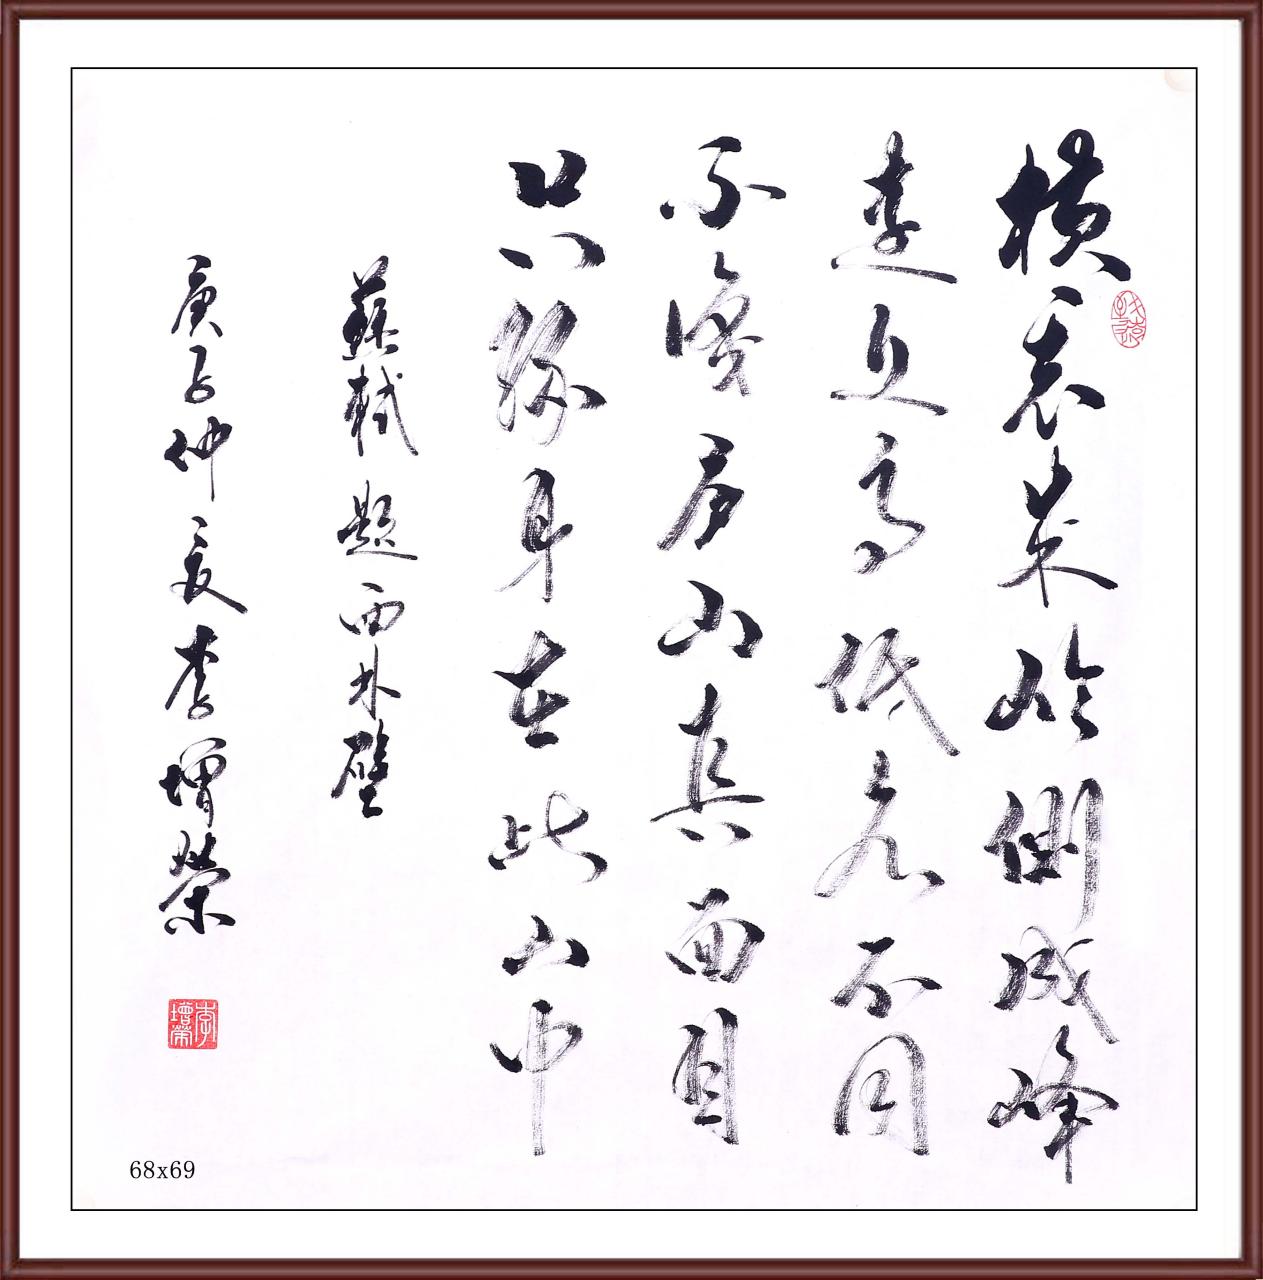 横看来岭侧成峰
遠近高低各不同
不識庐山真面目
只缘身在此山中
蘇軾題西林壁
庚子仲夏李增榮
李增榮
68x69